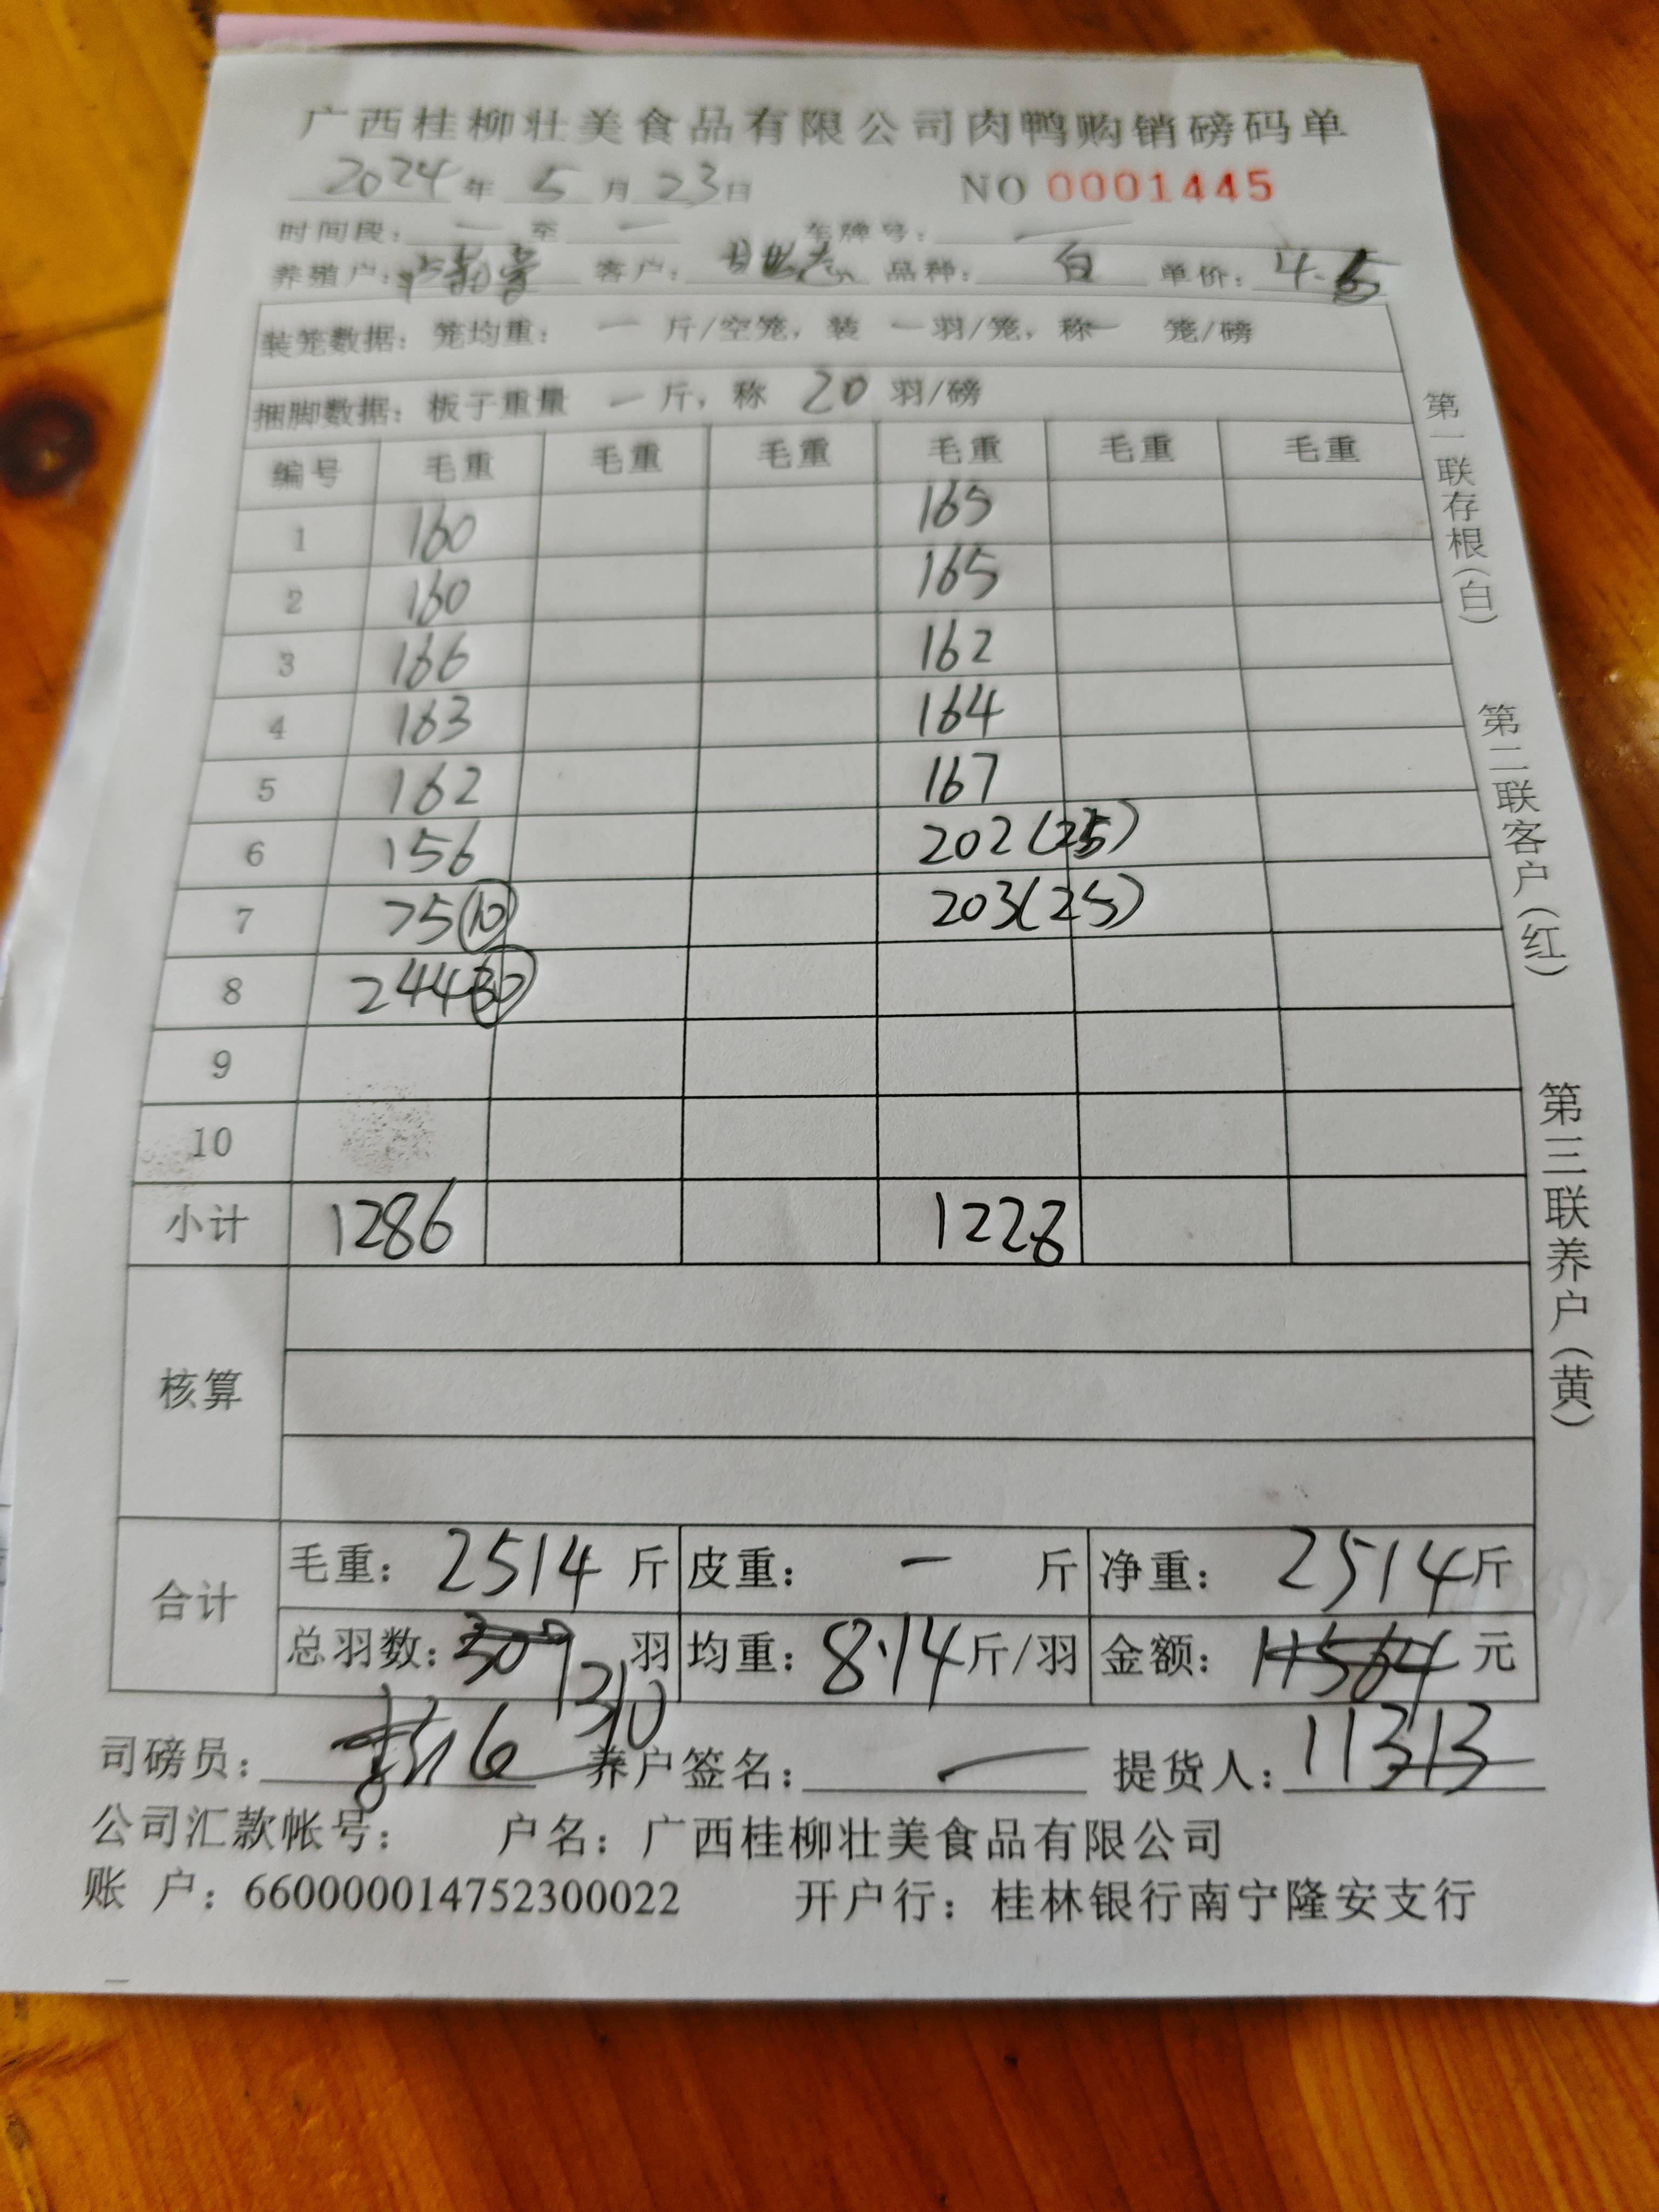 广西桂柳壮美食品有限公司肉鸭购销磅码单
2024年 5月 23日 NO 0001445
时间段: — 至 — 车牌号: —
养殖户: 客户: 品种: 白 单价: 4.5
装笼数据: 笼均重: — 斤/空笼, 装 — 羽/笼, 称 — 笼/磅
捆脚数据: 板子重量 — 斤, 称 20 羽/磅
编号 毛重 毛重 毛重 毛重 毛重 毛重
1 160 165
2 160 165
3 166 162
4 163 164
5 162 167
6 156 202(25)
7 75(10) 203(25)
8 244(30)
9
10
小计 1286 1228
核算
合计 毛重: 2514 斤 皮重: — 斤 净重: 2514 斤
总羽数: 309 羽 均重: 8.14 斤/羽 金额: 11564 元
310
司磅员: 养户签名: — 提货人: 11313
公司汇款帐号: 户名: 广西桂柳壮美食品有限公司
账 户: 660000014752300022 开户行: 桂林银行南宁隆安支行
第一联存根(白) 第二联客户(红) 第三联养户(黄)